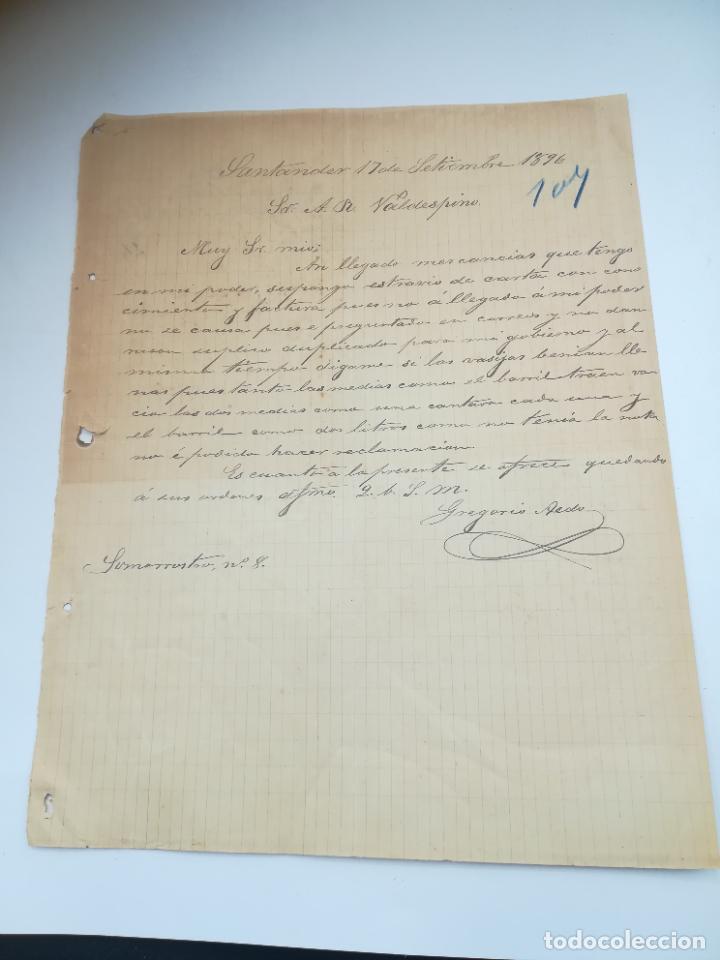 Santander 17 de Setiembre 1896
104
Sr. A. R. Valdespino.
Muy Sr. mio;
An llegado mercancias que tengo
en mi poder, supongo estravio de carta con cono
cimiento y factura pues no á llegado á mi poder
no se causa pues e preguntado en correos y no dan
rason suplico duplicado para mi gobierno y al
mismo tiempo digame si las vasijas benian lle
nas pues tanto las medias como el barril traen va
cia las dos medias como una cantara cada una y
el barril como dos litros como no tenia la nota
no é podido hacer reclamacion.
Es cuanto á la presente se ofrece quedando
á sus ordenes Q. b. S. M.
Gregorio Aedo
Somorrostro, nº 8.
todocoleccion
todocoleccion.net